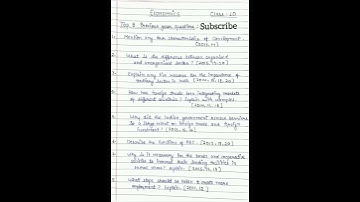 Economics Class - 10
Top 8 Previous year questions Subscribe
1. Mention any four characteristics of Development.
2. What is the difference between organised
and unorganised sector?
3. Explain any five reasons for the importance of
tertiary sector in India
How has foreign trade been integrating markets
of different countries? Explain with examples.
Why did the Indian government remove barriers
to a large extent on foreign trade and foreign
investment?
Describe the functions of RBI.
7. Why is it necessary for the banks and cooperative
societies to increase their lending facilities in
rural areas? Explain
What steps should be taken to create more
employment? Explain